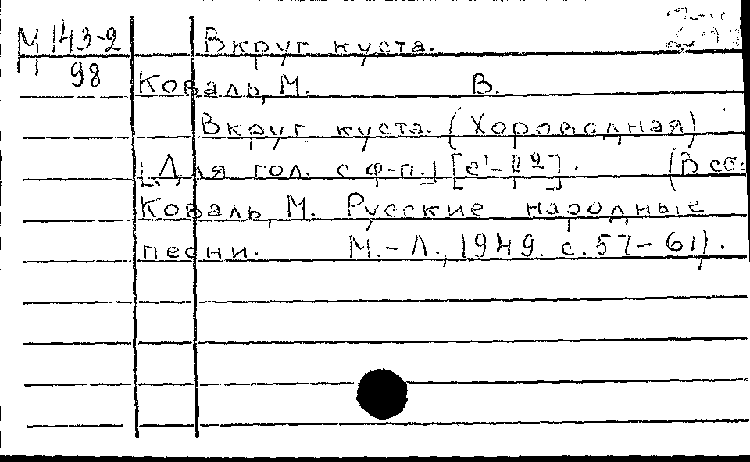 М 143-2 Вкруг куста.
98
Коваль, М. В.
Вкруг куста. (Хороводная)
[Для гол. с ф-п.] [e¹ - ²]. (В сб:
Коваль, М. Русские народные
песни. М.-Л., 1949. с. 57-61).